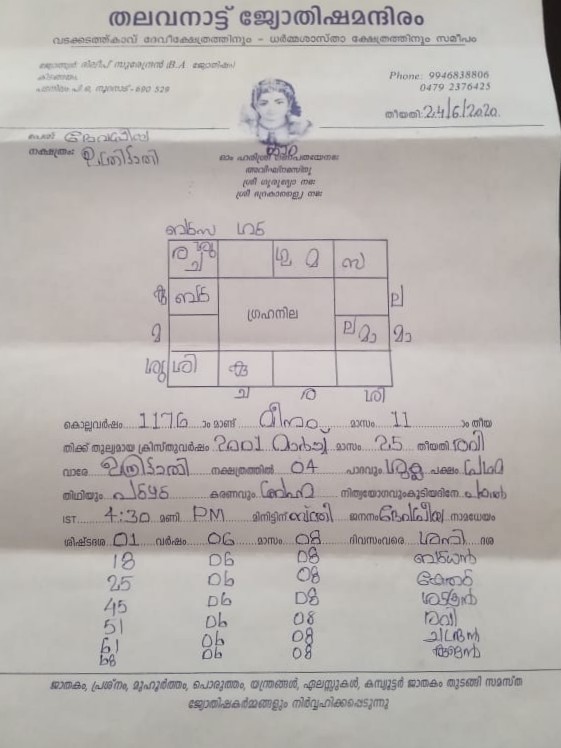 തലവനാട്ട് ജ്യോതിഷമന്ദിരം
വടക്കടത്ത്കാവ് ദേവീക്ഷേത്രത്തിനും - ധർമ്മശാസ്താ ക്ഷേത്രത്തിനും സമീപം
ജ്യോത്സ്യൻ ദിലീപ് സുരേന്ദ്രൻ B.A ജ്യോതിഷം
പി.ഒ, നൂറനാട് - 690 529
Phone: 9946838806
0479 2376425
തീയതി: 24/6/2020
പേര്
നക്ഷത്രം: ഉത്രട്ടാതി
ഓം ഹരിശ്രീ ഗണപതയേനമഃ
അവിഘ്നമസ്തു
ശ്രീ ഗുരുഭ്യോ നമഃ
ശ്രീ ഭദ്രകാള്യൈ നമഃ
ച മ സ
ഗ്രഹനില
ല
മ ല മാ മാ
ശി
ച ര ശി
കൊല്ലവർഷം 1176 ാം മാണ്ട് മീനം മാസം 11 ാം തീയ
തിക്ക് തുല്യമായ ക്രിസ്തുവർഷം 2001 മാർച്ച് മാസം 25 തീയതി രവി
വാരേ ഉത്രട്ടാതി നക്ഷത്രത്തിൽ 04 പാദവും ശുക്ല പക്ഷം പ്രഥമ
തിഥിയും കരണവും ബ്രഹ്മ നിത്യയോഗവുംകൂടിയദിനേ പകൽ
IST 4:30 മണി PM മിനിട്ടിന് ജനനം നാമധേയം
ശിഷ്ടദശ 01 വർഷം 06 മാസം 08 ദിവസംവരെ ശനി ദശ
18 06 08 ബുധൻ
25 06 08 കേതു
45 06 08 ശുക്രൻ
51 06 08 രവി
61 06 08 ചന്ദ്രൻ
68 06 08 കുജൻ
ജാതകം, പ്രശ്നം, മുഹൂർത്തം, പൊരുത്തം, യന്ത്രങ്ങൾ, ഏലസ്സുകൾ, കമ്പ്യൂട്ടർ ജാതകം തുടങ്ങി സമസ്ത
ജ്യോതിഷകർമ്മങ്ങളും നിർവ്വഹിക്കപ്പെടുന്നു